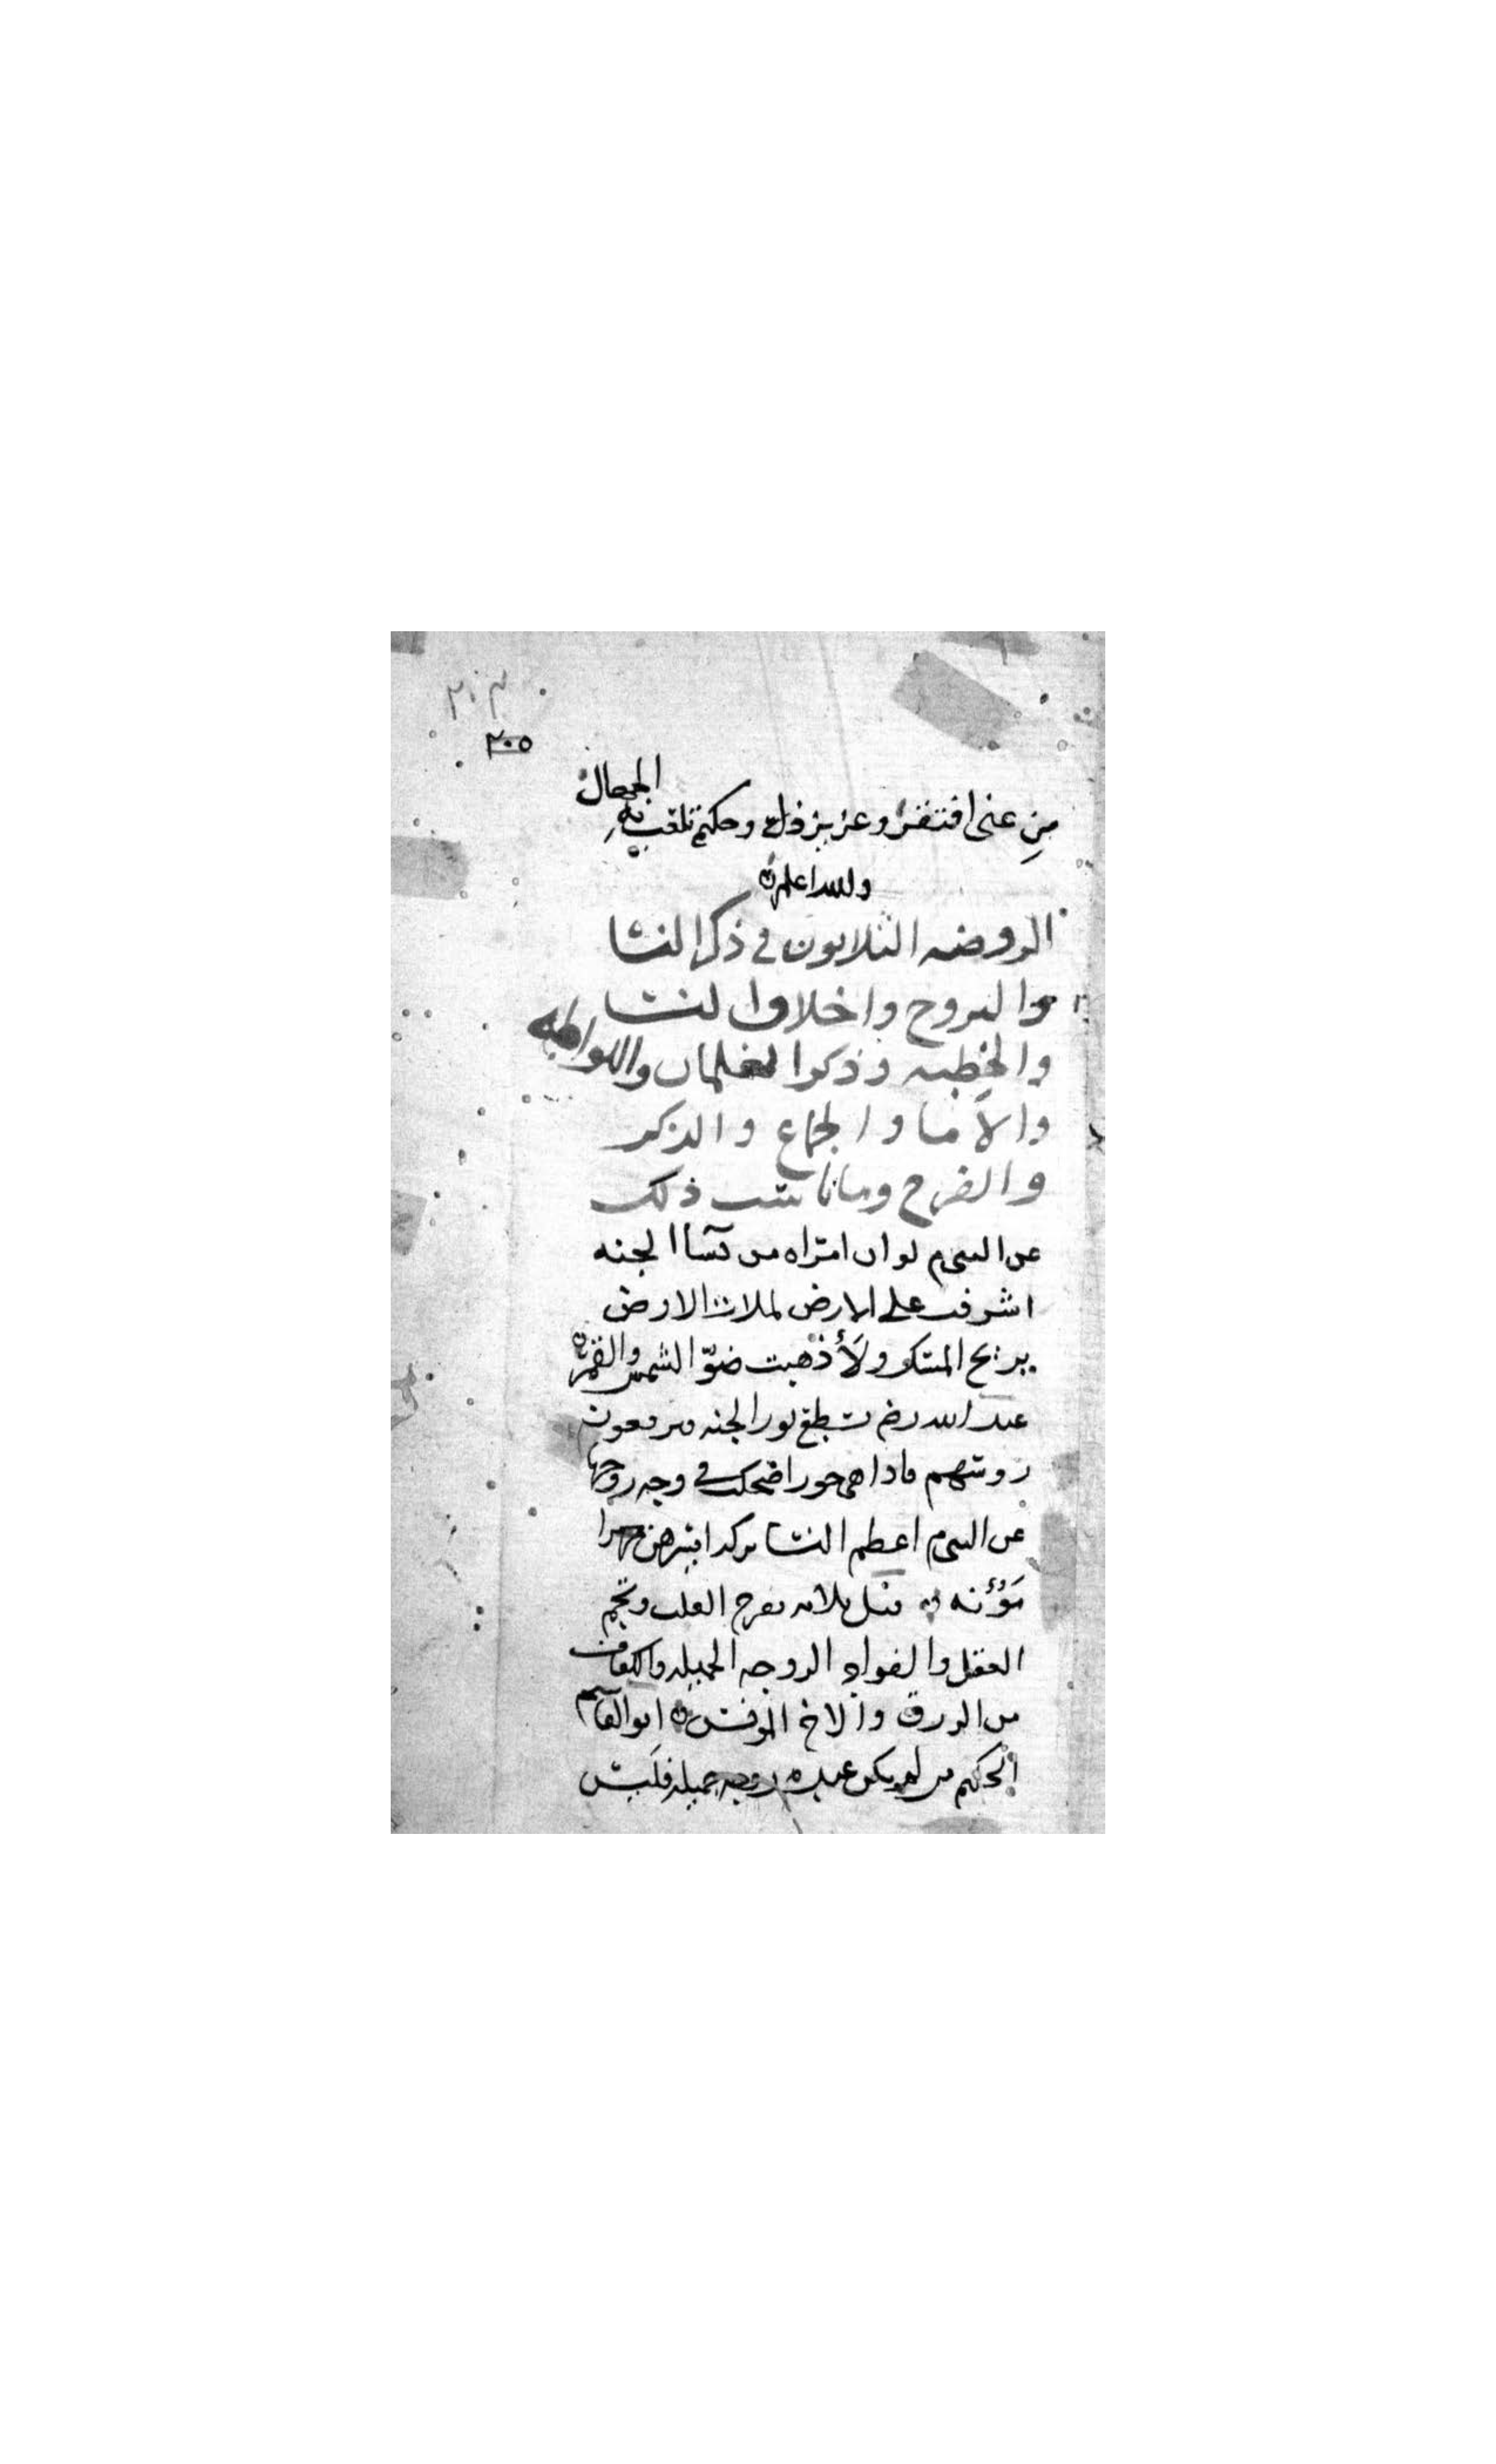 ٢٠٣
٢٠٥
من غنى افتقر وعزيز ذل وحكيم تلعب به الجهال
والله اعلم
الروضه الثلاثون في ذكر النسا
والتزوج واخلاق النسا
والخطبه وذكر الغلمان واللواطه
والاما والجماع والذكر
والفرج وما ناسب ذلك
عن النبي م لو ان امراه من نسا الجنه
اشرفت على الارض لملات الارض
بريح المسك ولأذهبت ضوّ الشمس والقمر
عبد الله رض سطع نور الجنه فرفعوا
روسهم فاذا هي حورا ضحكت في وجه زوجها
عن النبي م اعظم النسا بركه ايسرهن مهرا
مؤنه قيل ثلاثه تفرح القلب
العقل والفواد الزوجه الجميله والكفاف
من الرزق والاخ المونس ابو القاسم
الحكيم من لم يكن عنده زوجه جميله فليس